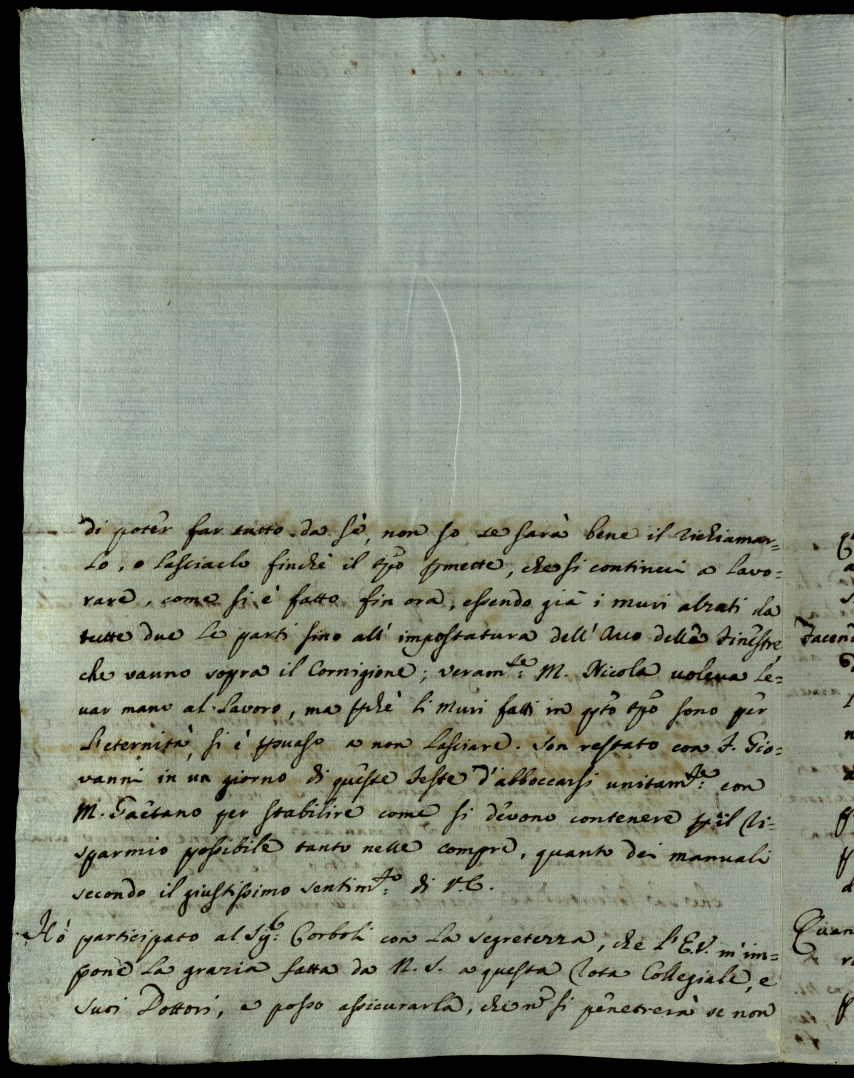 di poter far tutto da sè, non so se sarà bene il richiamar=
lo, o lasciarlo finchè il tpo pmette, che si continui a lavo=
rare, come si è fatto fin ora, essendo già i muri alzati da
tutte due le parti sino all' impostatura dell' Arco delle Finestre
che vanno sopra il Cornigione; veram.te M. Nicola voleva le=
var mano al Lavoro, ma pchè li Muri fatti in qto tpo sono per
L'eternità, si è psuaso a non lasciare. Son restato con F. Gio=
vanni in un giorno di queste Feste d'abboccarsi unitam.te con
M. Gaetano per stabilire come si devono contenere p il Ri=
sparmio possibile tanto nelle compre, quanto dei manuali
secondo il giustissimo sentim.to di V.E.
Hò participato al Sig.r Corboli con la segretezza, che l'E.V. m'im=
pone la grazia fatta da N. S. a questa Rota Collegiale, e
suoi Dottori, e posso assicurarla, che nō si penetrerà se non
Facen
Quan